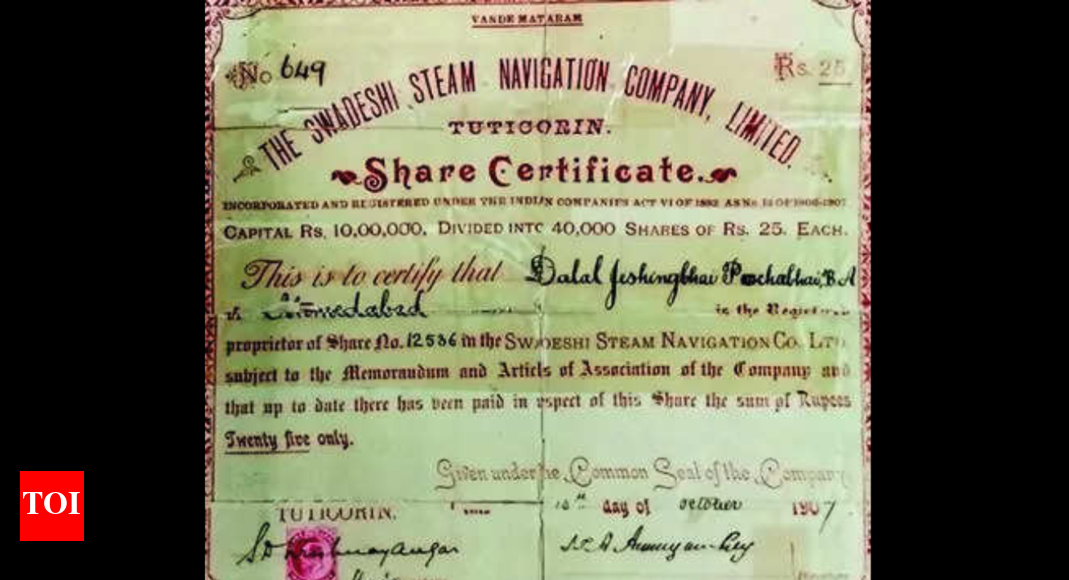 VANDE MATARAM
No 649
Rs. 25
THE SWADESHI STEAM NAVIGATION COMPANY, LIMITED.
TUTICORIN.
Share Certificate.
INCORPORATED AND REGISTERED UNDER THE INDIAN COMPANIES ACT VI OF 1882 AS No. OF 1906-1907
CAPITAL RS. 10,00,000, DIVIDED INTO 40,000 SHARES OF RS. 25. EACH.
This is to certify that Dalal Jeshingbhai B A
of Ahmedabad is the Registered
proprietor of Share No. 12536 in the SWADESHI STEAM NAVIGATION CO. LTD
subject to the Memorandum and Articls of Association of the Company and
that up to date there has been paid in espect of this Share the sum of Rupees
Twenty five only.
Given under he Common Seal of the Company
TUTICORIN. day of October 1907
TOI